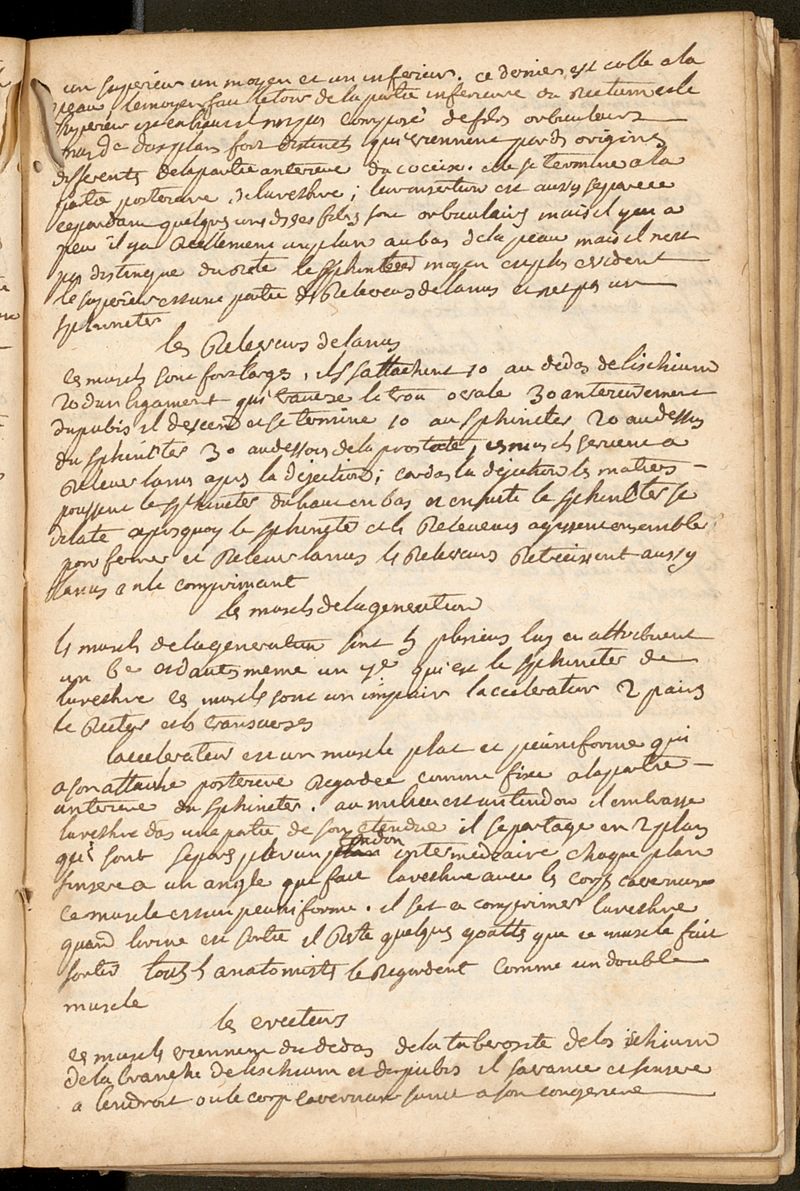 un superieur un moyen et un inferieur. ce dernier est colle a la
peau, le moyen fait le tour de la partie inferieure du Rectum et le
superieur est en haut il n'est pas composé de fibres orbiculaires
mais de deux plans fort distincts qui viennent par des origines
differents de la partie anterieure du coccix. il se termine a la
partie posterieure de l'urethre; leur insertion est aussy separee
cependant quelques uns de ses fibres sont orbiculaires mais il y en a
peu il y a Reellement un plan au bas de la peau mais il n'est
pas distingue du reste le sphincter moyen est plus evident
le superieur est une partie des Releveurs de l'anus et n'est pas un
sphincter
les Releveurs de l'anus
ces muscles sont fort larges, ils s'attachent 1o au dedas de l'ischium
2o d'un ligament qui traverse le trou ovale 3o anterieurement
du pubis il descend et se termine 1o au sphincter 2o au dessus
du sphincter 3o au dessous de la prostate, ces muscles servent a
Relever l'anus apres la dejection; car das la dejection les matiers
poussent le sphincter du haut en bas et ensuite le sphincter se
dilate apres quoy le sphincter et les Releveurs agissent ensemble
pour fermer et Relever l'anus les Releveurs Retrecissent aussy
l'anus en le comprimant
les muscles de la generation
les muscles de la generation sont 5 plusieurs lui en attribuent
un 6e et d'autres meme un 7e qui est le sphincter de
l'urethre ces muscles sont un impair l'accelerateur 2 pairs
le Recteur et les transverses
l'accelerateur est un muscle plat et penniforme qui
a son attache posterieure Regardee comme fixe a la partie
anterieure du sphincter. au milieu est un tendon il embrasse
l'urethre das une partie de son etendue il se partage en 2 plans
qui sont separés par un plan tendon intermediaire chaque plan
s'insere a un angle que fait l'urethre avec les corps caverneux
ce muscle est un penniforme. il sert a comprimer l'urethre
quand l'urine est sortie il Reste quelques goutts que ce muscle fait
sortir tous les anatomistes le Regardent comme un double
muscle
les erecteurs
ces muscles viennent du dedas de la tuberosite de l'os ischium
de la branche de l'ischium et du pubis il s'avance et s'insere
a l'endroit ou le corps caverneux s'unit a son congenere